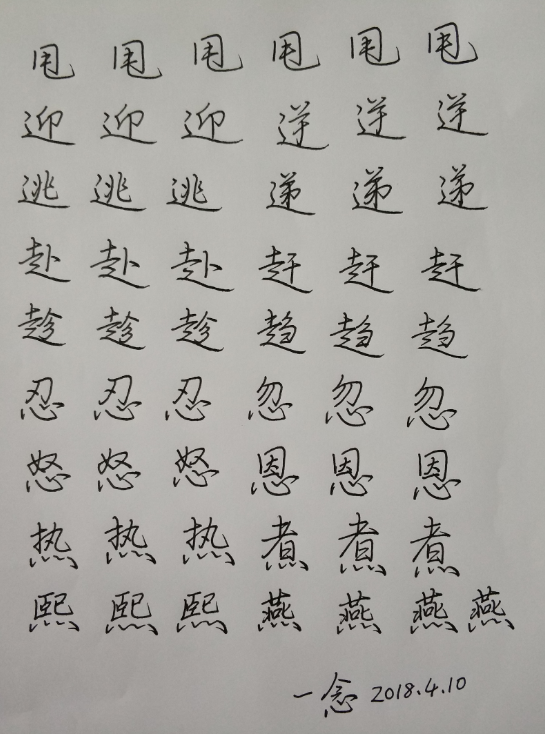 甩 甩 甩 甩 甩 甩
迎 迎 迎 逆 逆 逆
逃 逃 逃 递 递 递
赴 赴 赴 赶 赶 赶
趁 趁 趁 趋 趋 趋
忍 忍 忍 忽 忽 忽
怒 怒 怒 恩 恩 恩
热 热 热 煮 煮 煮
熙 熙 熙 燕 燕 燕 燕
一念 2018.4.10